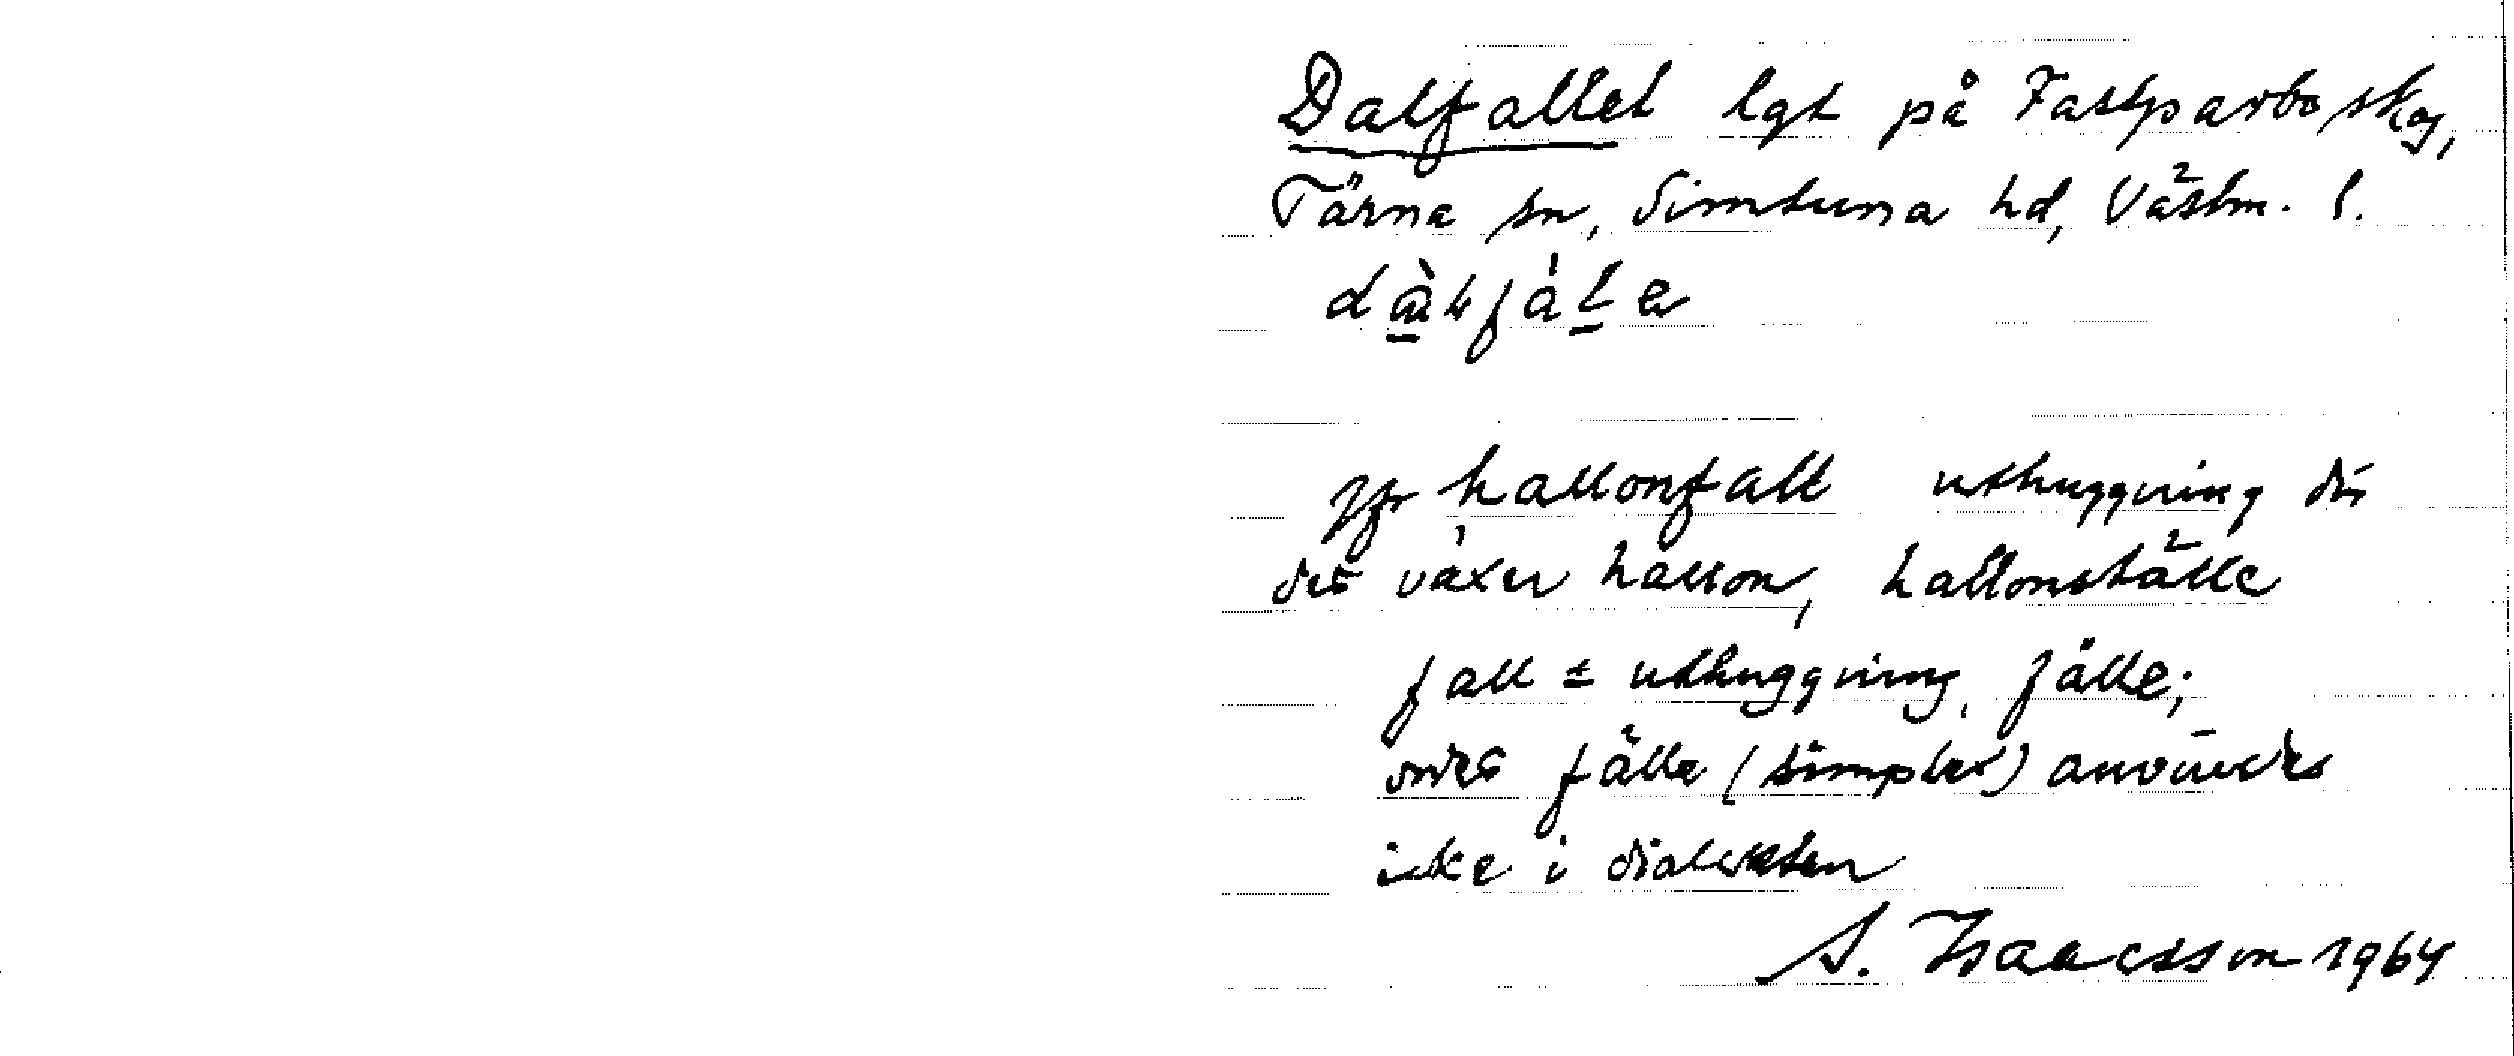 Dalfallet lgt på Fastparbo skog,
Tärna sn, Simtuna hd, Västm. l.
jfr hallonfall uthuggning där
det växer hallon, hallonställe
fall = uthuggning, fälle;
ordet fälle (simplex) användes
icke i dialekten
S. Isaacsson 1964